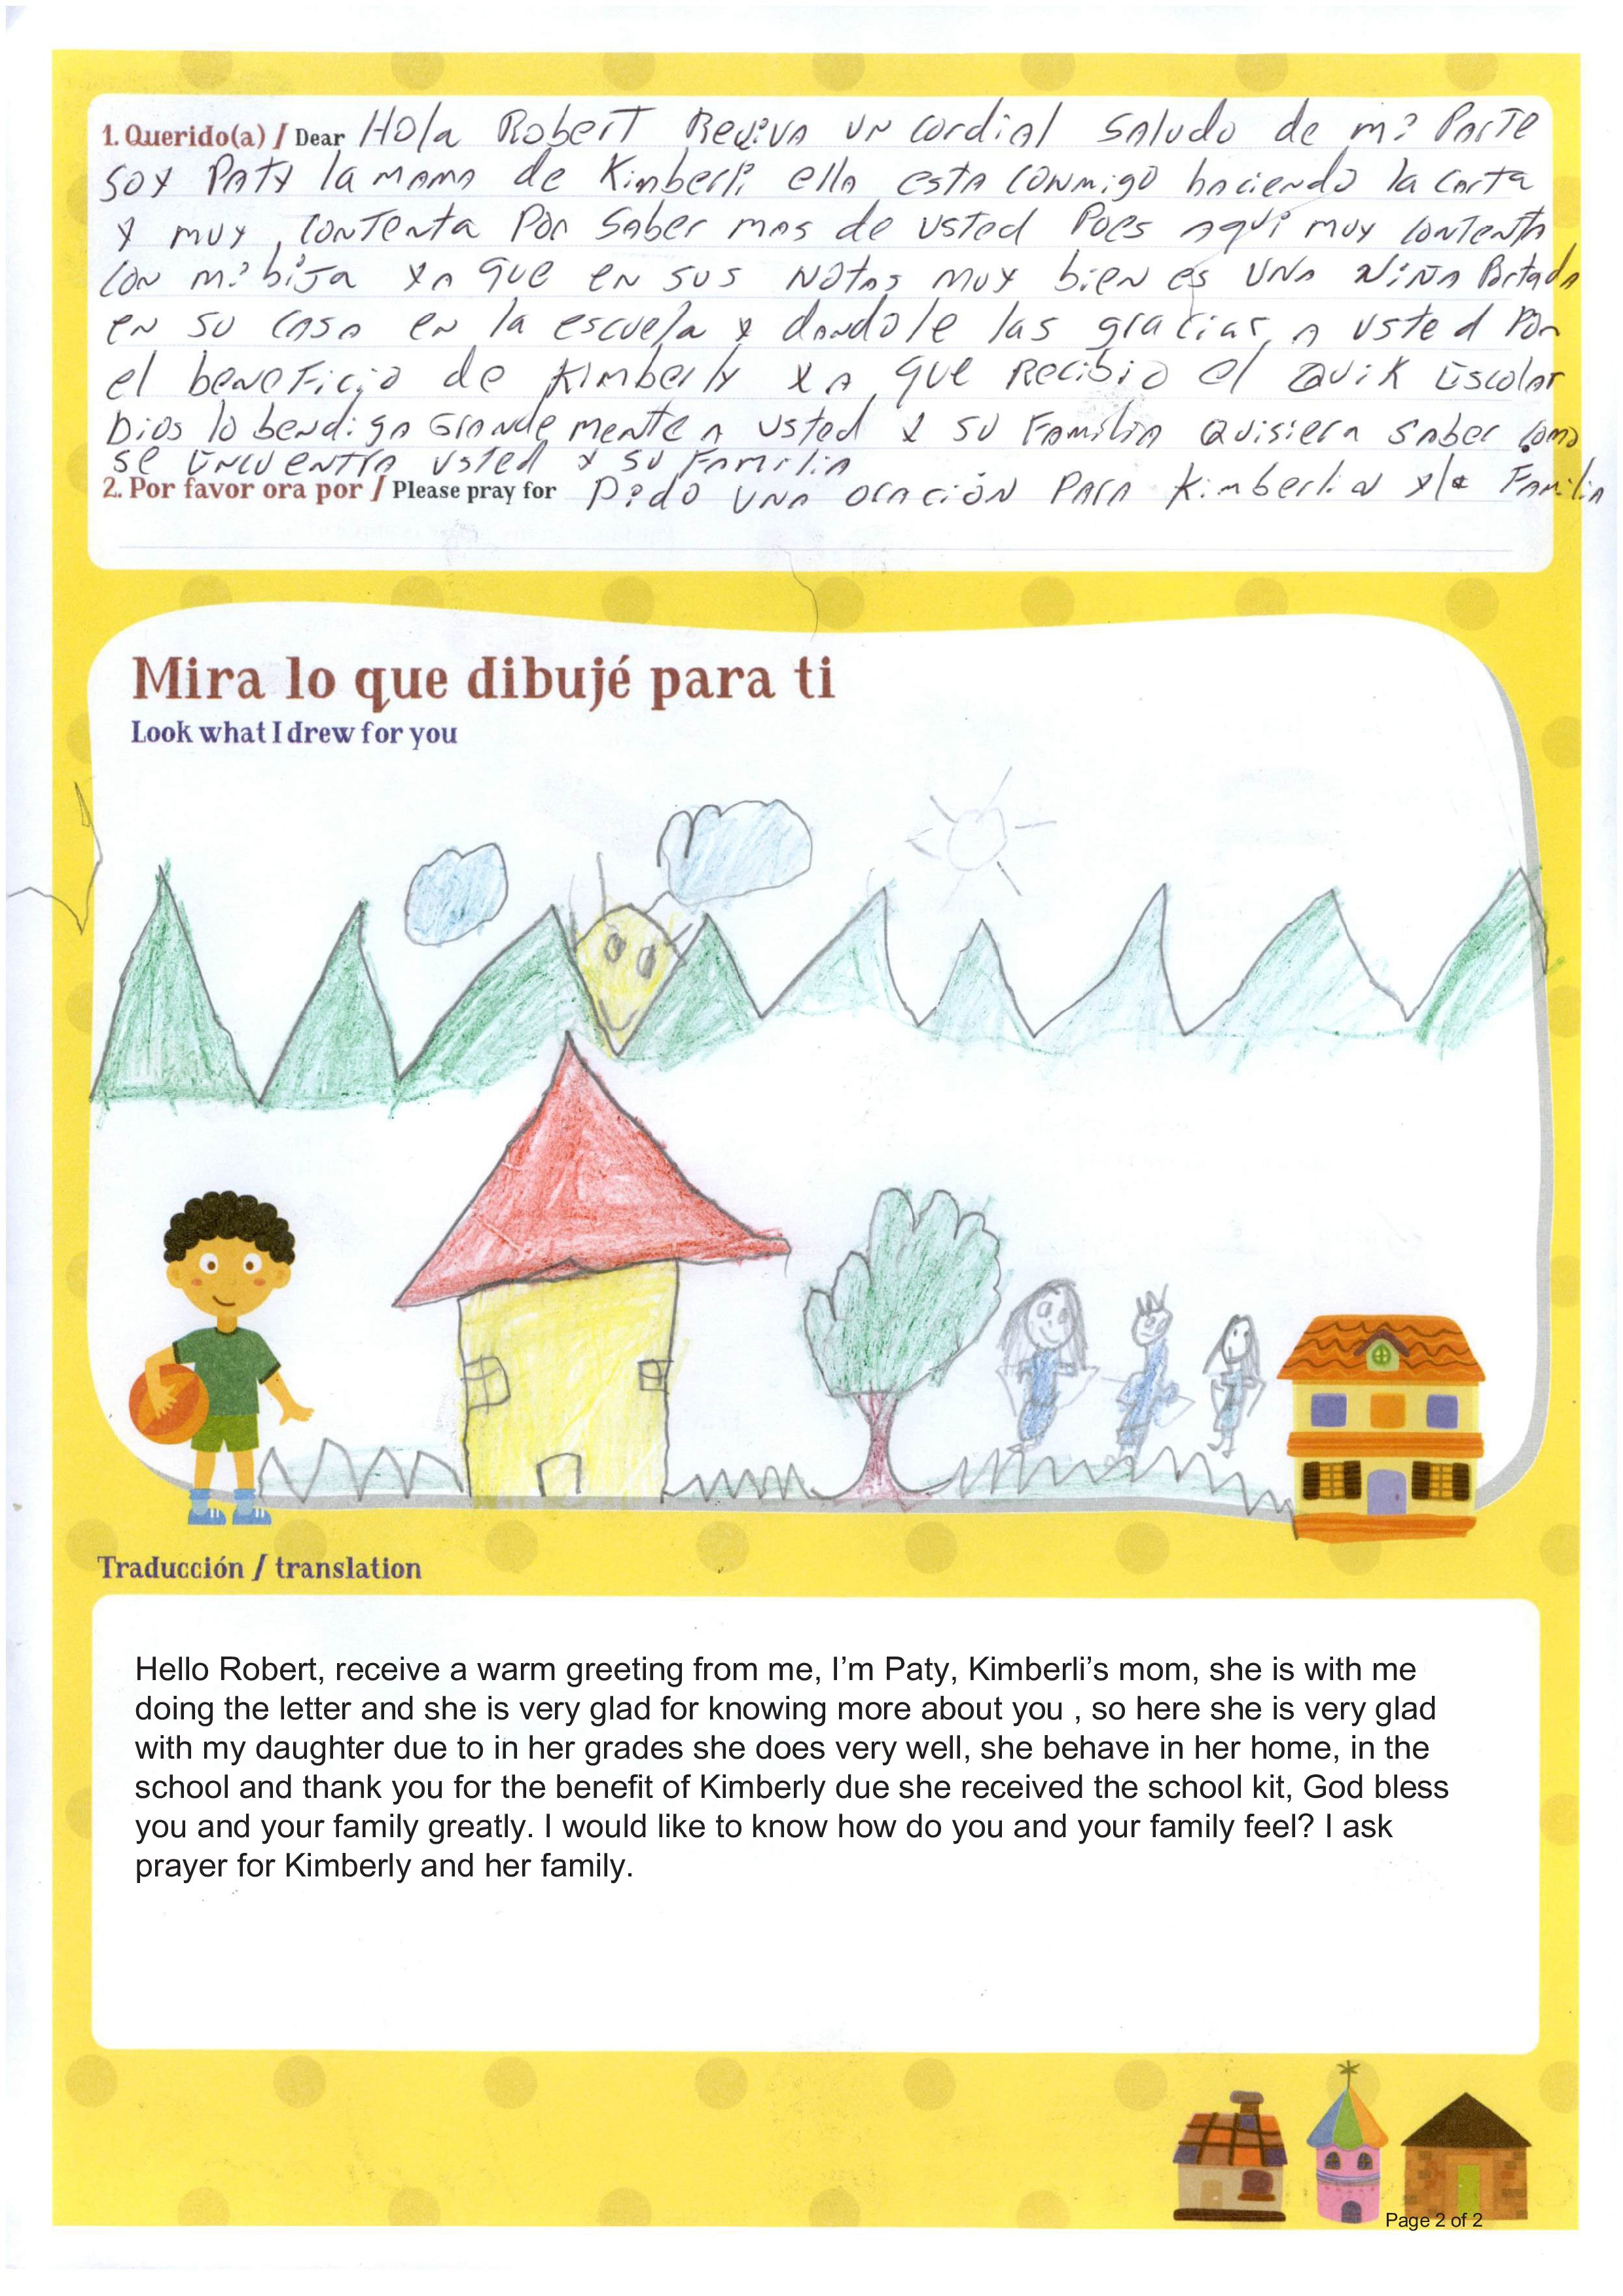 1. Querido(a) / Dear Hola Robert Reciva un cordial saludo de mi Parte
soy Paty la mama de Kimberli ella esta conmigo haciendo la carta
y muy, contenta Por saber mas de usted Poes aqui muy contenta
con mi hija ya que en sus notas muy bien es una niña Portada
en su casa en la escuela y dandole las gracias a usted Por
el beneficio de Kimberly ya que Recibio el Escolar
Dios lo bendiga Grande mente a usted y su Familia Quisiera saber como
se encuentra usted y su Familia
2. Por favor ora por / Please pray for Pido una oración Para Kimberli y la Familia
Mira lo que dibujé para ti
Look what I drew for you
Traducción / translation
Hello Robert, receive a warm greeting from me, I’m Paty, Kimberli’s mom, she is with me
doing the letter and she is very glad for knowing more about you , so here she is very glad
with my daughter due to in her grades she does very well, she behave in her home, in the
school and thank you for the benefit of Kimberly due she received the school kit, God bless
you and your family greatly. I would like to know how do you and your family feel? I ask
prayer for Kimberly and her family.
Page 2 of 2